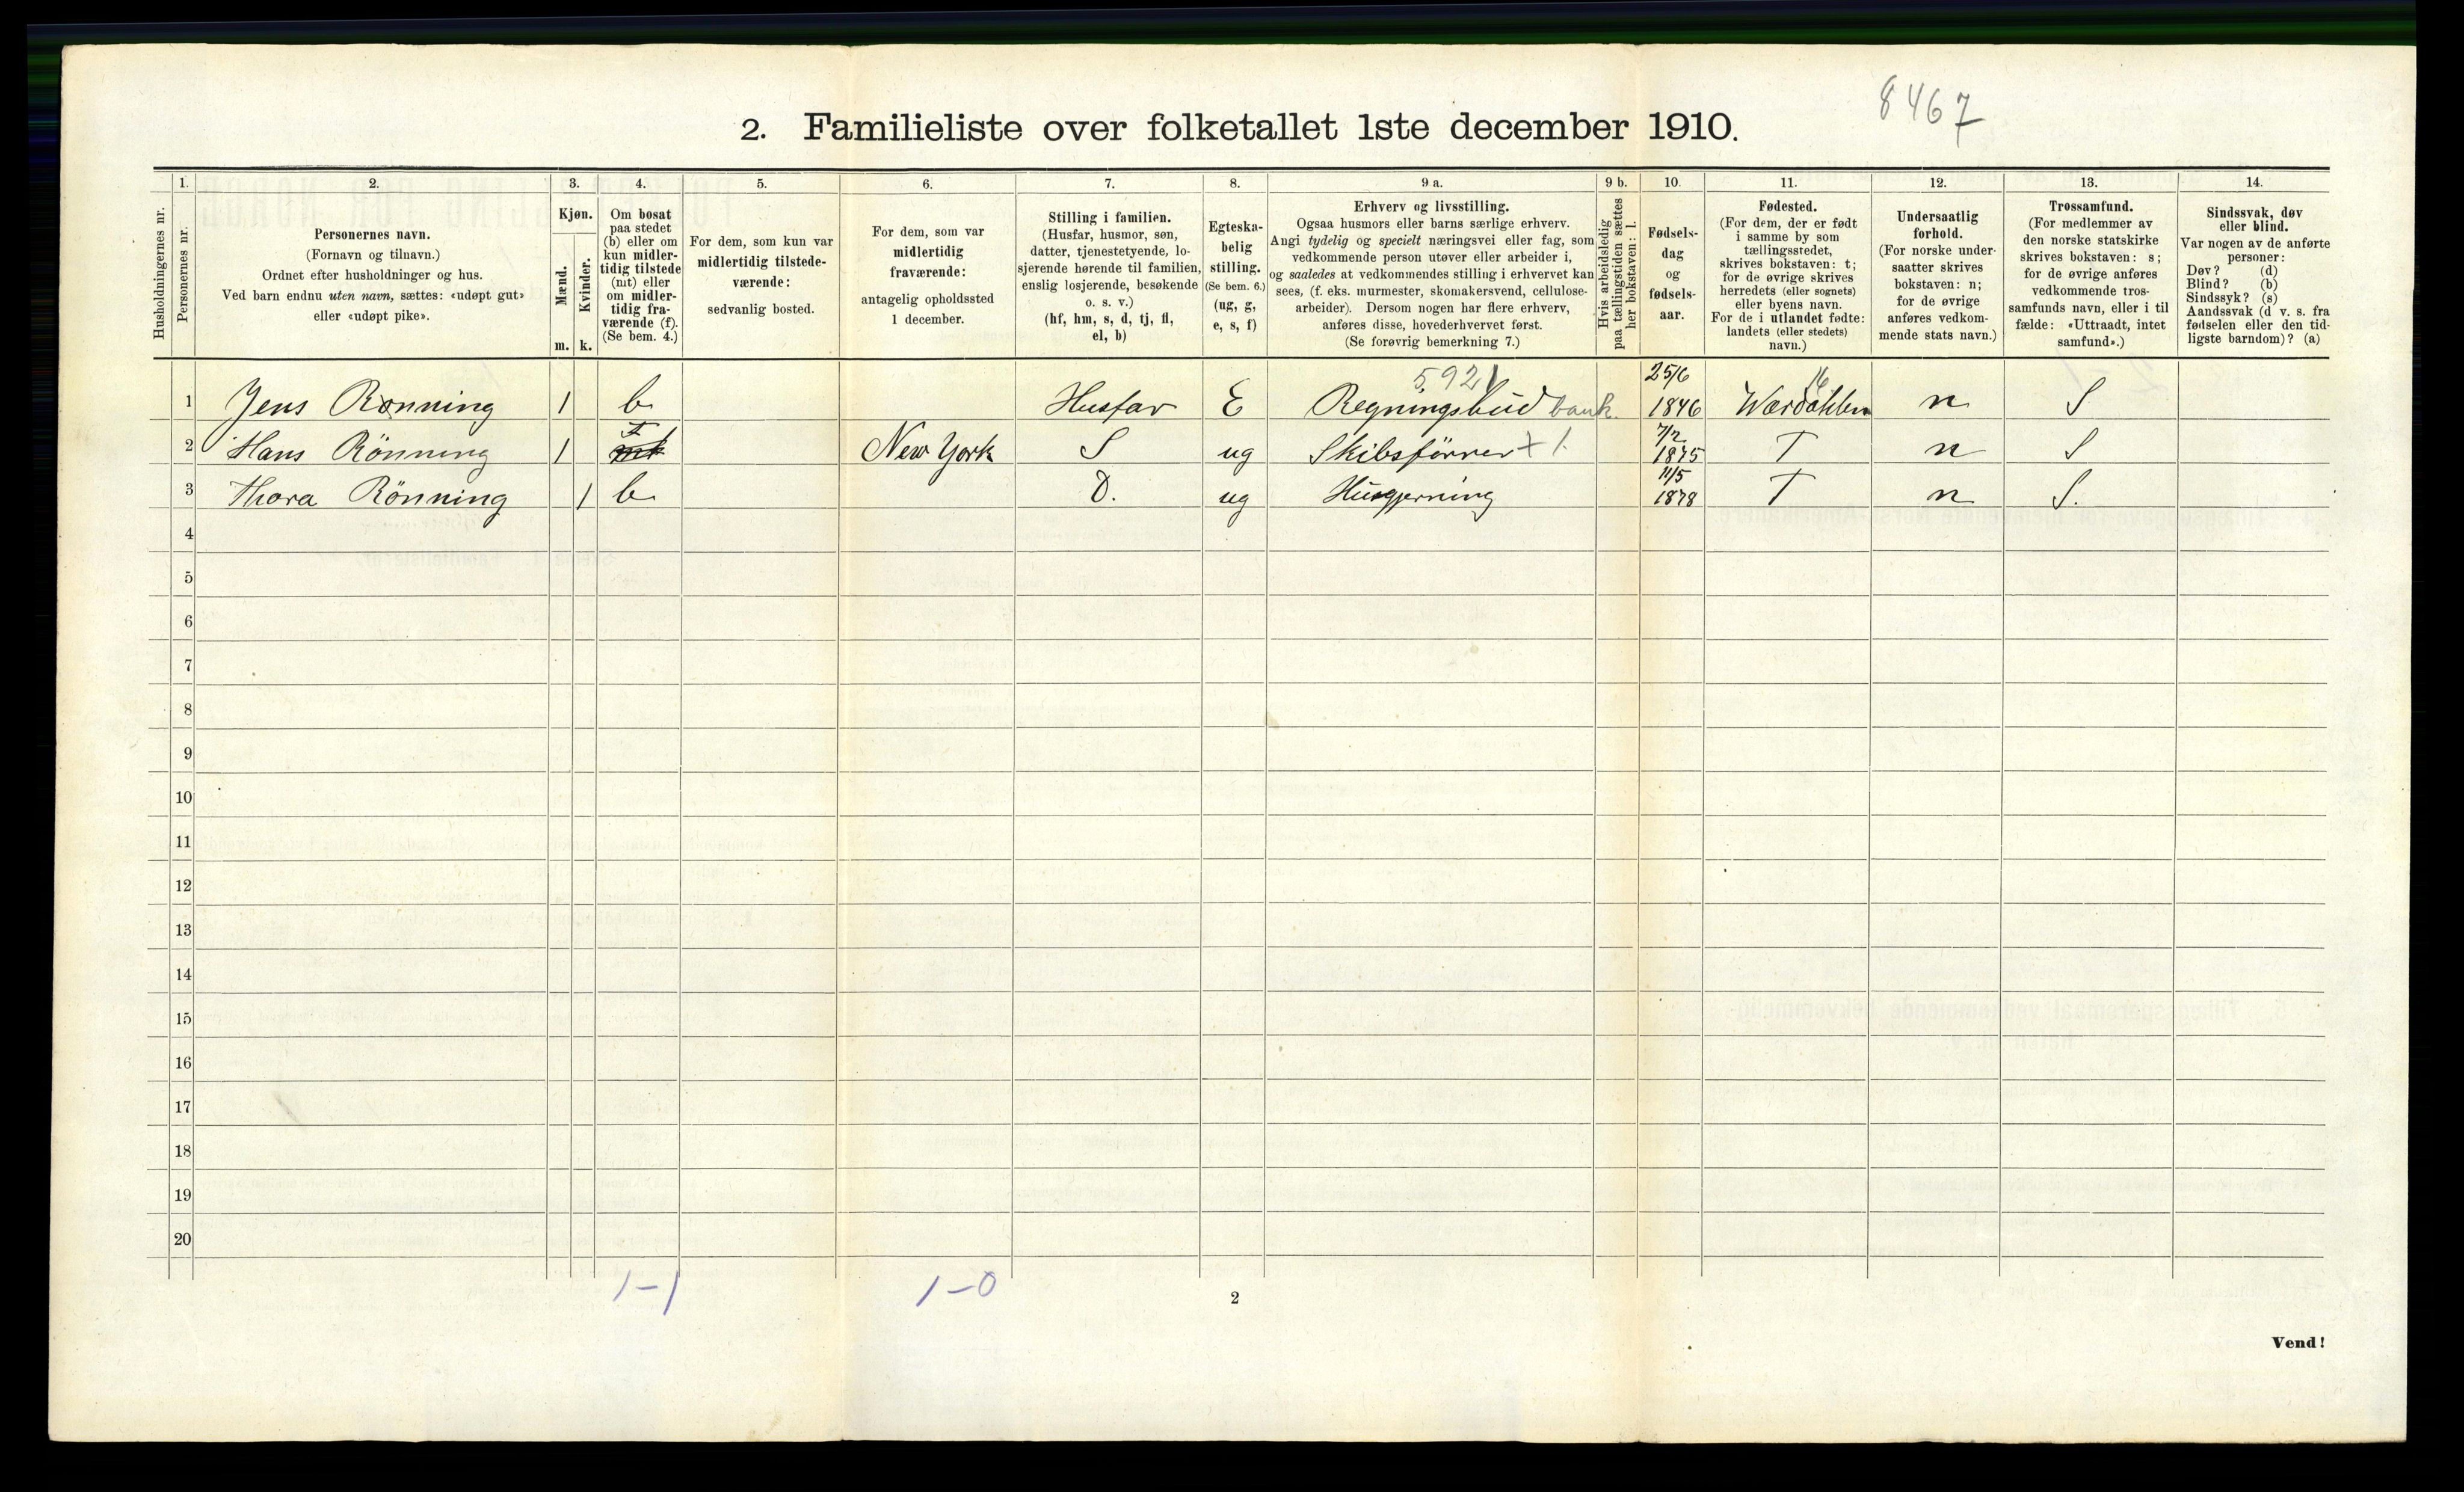 8467
2. Familieliste over folketallet 1ste december 1910.
Husholdningernes nr.
1.
Personernes nr.
2.
Personernes navn.
(Fornavn og tilnavn.)
Ordnet efter husholdninger og hus.
Ved barn endnu uten navn, sættes: «udøpt gut»
eller «udøpt pike».
3.
Kjøn.
Mænd.
Kvinder.
m. k.
4.
Om bosat
paa stedet
(b) eller om
kun midler-
tidig tilstede
(mt) eller
om midler-
tidig fra-
værende (f).
(Se bem. 4.)
5.
For dem, som kun var
midlertidig tilstede-
værende:
sedvanlig bosted.
6.
For dem, som var
midlertidig
fraværende:
antagelig opholdssted
1 december.
7.
Stilling i familien.
(Husfar, husmor, søn,
datter, tjenestetyende, lo-
sjerende hørende til familien,
enslig losjerende, besøkende
o. s. v.)
(hf, hm, s, d, tj, fl,
el, b)
8.
Egteska-
belig
stilling.
(Se bem. 6.)
(ug, g,
e, s, f)
9 a.
Erhverv og livsstilling.
Ogsaa husmors eller barns særlige erhverv.
Angi tydelig og specielt næringsvei eller fag, som
vedkommende person utøver eller arbeider i,
og saaledes at vedkommendes stilling i erhvervet kan
sees, (f. eks. murmester, skomakersvend, cellulose-
arbeider). Dersom nogen har flere erhverv,
anføres disse, hovederhvervet først.
(Se forøvrig bemerkning 7.)
9 b.
Hvis arbeidsledig
paa tællingstiden sættes
her bokstaven: l.
10.
Fødsels-
dag
og
fødsels-
aar.
11.
Fødested.
(For dem, der er født
i samme by som
tællingsstedet,
skrives bokstaven: t;
for de øvrige skrives
herredets (eller sognets)
eller byens navn.
For de i utlandet fødte:
landets (eller stedets)
navn.)
12.
Undersaatlig
forhold.
(For norske under-
saatter skrives
bokstaven: n;
for de øvrige
anføres vedkom-
mende stats navn.)
13.
Trossamfund.
(For medlemmer av
den norske statskirke
skrives bokstaven: s;
for de øvrige anføres
vedkommende tros-
samfunds navn, eller i til
fælde: «Uttraadt, intet
samfund».)
14.
Sindssvak, døv
eller blind.
Var nogen av de anførte
personer:
Døv? (d)
Blind? (b)
Sindssyk? (s)
Aandssvak (d v. s. fra
fødselen eller den tid-
ligste barndom)? (a)
5921 25/6 16
1 Jens Rønning 1 b Husfar E Regningsbud bank. 1846 Wærdahlen n S
f 7/2
2 Hans Rönning 1 mt New York S ug Skibsförrer + 1. 1875 T n S
11/5
3 Thora Rönning 1 b D. ug Husgjerning 1878 T n S.
4
5
6
7
8
9
10
11
12
13
14
15
16
17
18
19
20
1-1 1-0
2
Vend!